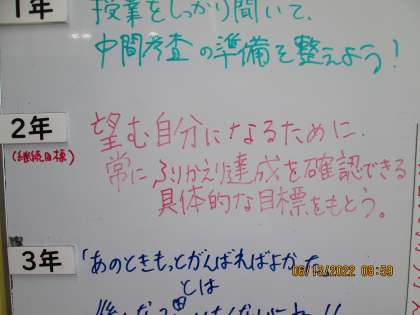 1年
授業をしっかり聞いて、
中間考査の準備を整えよう!
2年
(継続目標)
望む自分になるために、
常にふりかえり達成を確認できる
具体的な目標をもとう。
3年
「あのときもっとがんばればよかった
とは
06/13/2022 08:59